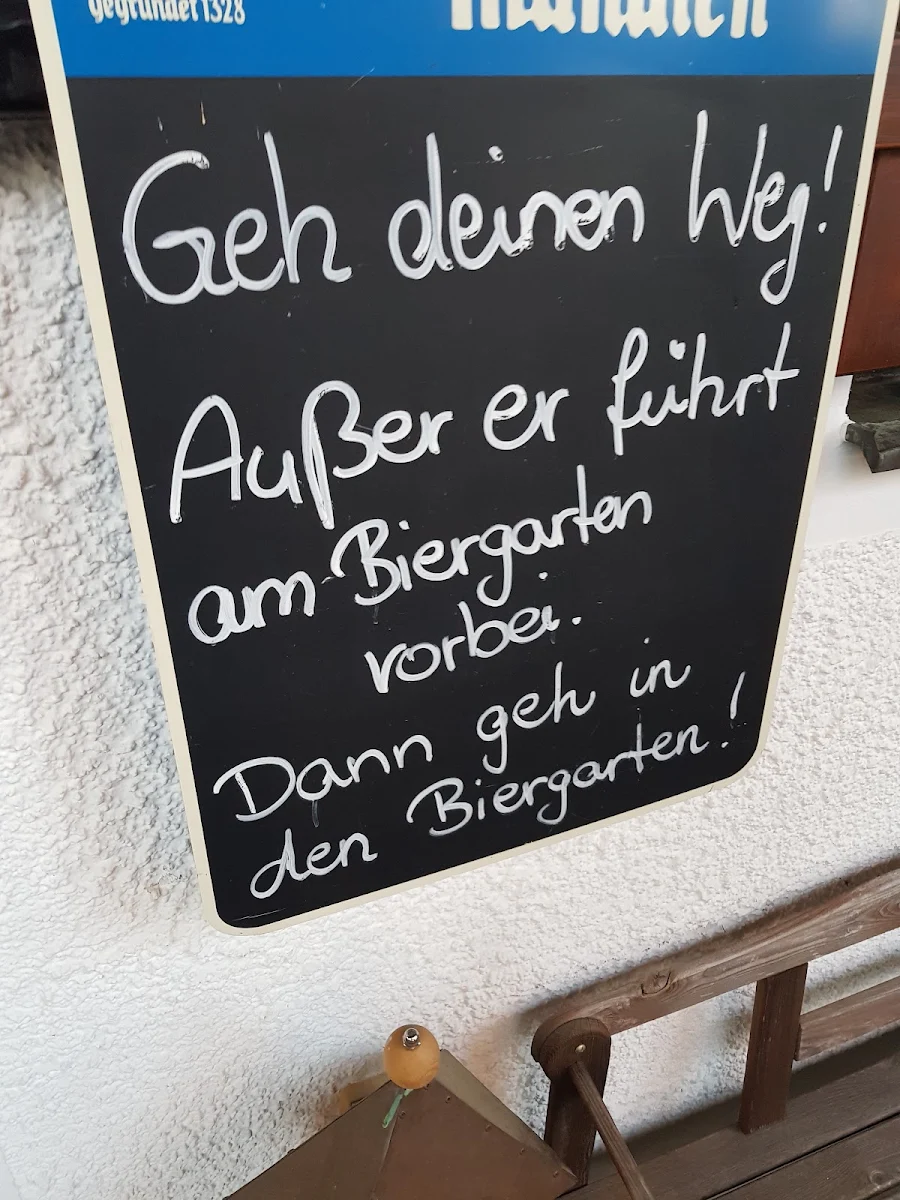 gegründet 1328
Geh deinen Weg!
Außer er führt
am Biergarten
vorbei.
Dann geh in
den Biergarten!